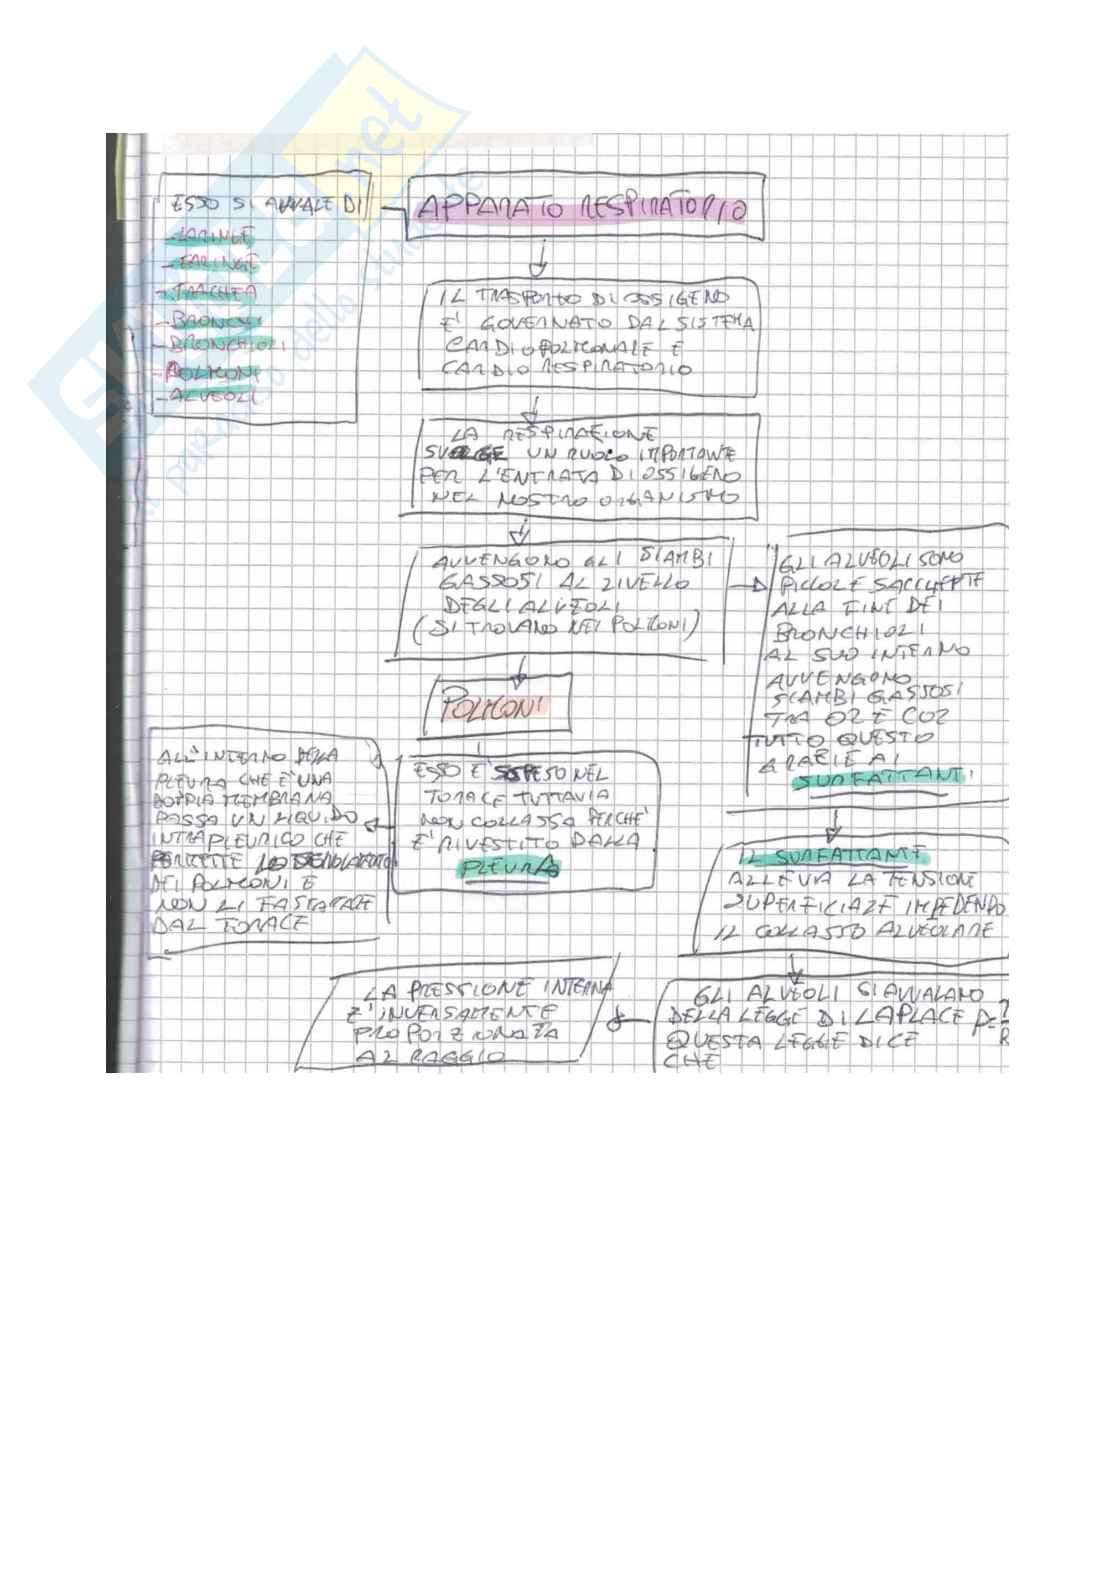 ESSO SI AVVALE DI
- LARINGE
- FARINGE
- TRACHEA
- BRONCHI
- BRONCHIOLI
- POLMONI
- ALVEOLI
APPARATO RESPIRATORIO
IL TRASPORTO DI OSSIGENO
E' GOVERNATO DAL SISTEMA
CARDIOPOLMONALE E
CARDIO RESPIRATORIO
LA RESPIRAZIONE
SVOLGE UN RUOLO IMPORTANTE
PER L'ENTRATA DI OSSIGENO
NEL NOSTRO ORGANISMO
AVVENGONO GLI SCAMBI
GASSOSI AL LIVELLO
DEGLI ALVEOLI
(SI TROVANO NEI POLMONI)
GLI ALVEOLI SONO
PICCOLE SACCHETTE
ALLA FINE DEI
BRONCHIOLI
AL SUO INTERNO
AVVENGONO
SCAMBI GASSOSI
TRA O2 E CO2
TUTTO QUESTO
GRAZIE AI
SURFATTANTI
POLMONI
ESSO E' SOSPESO NEL
TORACE TUTTAVIA
NON COLLASSA PERCHE'
E' RIVESTITO DALLA
PLEURA
ALL'INTERNO DELLA
PLEURA CHE E' UNA
DOPPIA MEMBRANA
PASSA UN LIQUIDO
INTRAPLEURICO CHE
PERMETTE LO
DEI POLMONI E
NON LI FA
DAL TORACE
IL SURFATTANTE
ALLEVIA LA TENSIONE
SUPERFICIALE IMPEDENDO
IL COLLASSO ALVEOLARE
GLI ALVEOLI SI AVVALANO
DELLA LEGGE DI LAPLACE P=
QUESTA LEGGE DICE
CHE
LA PRESSIONE INTERNA
E' INVERSAMENTE
PROPORZIONATA
AL RAGGIO
SKUOLA.net
il paradiso dello studente